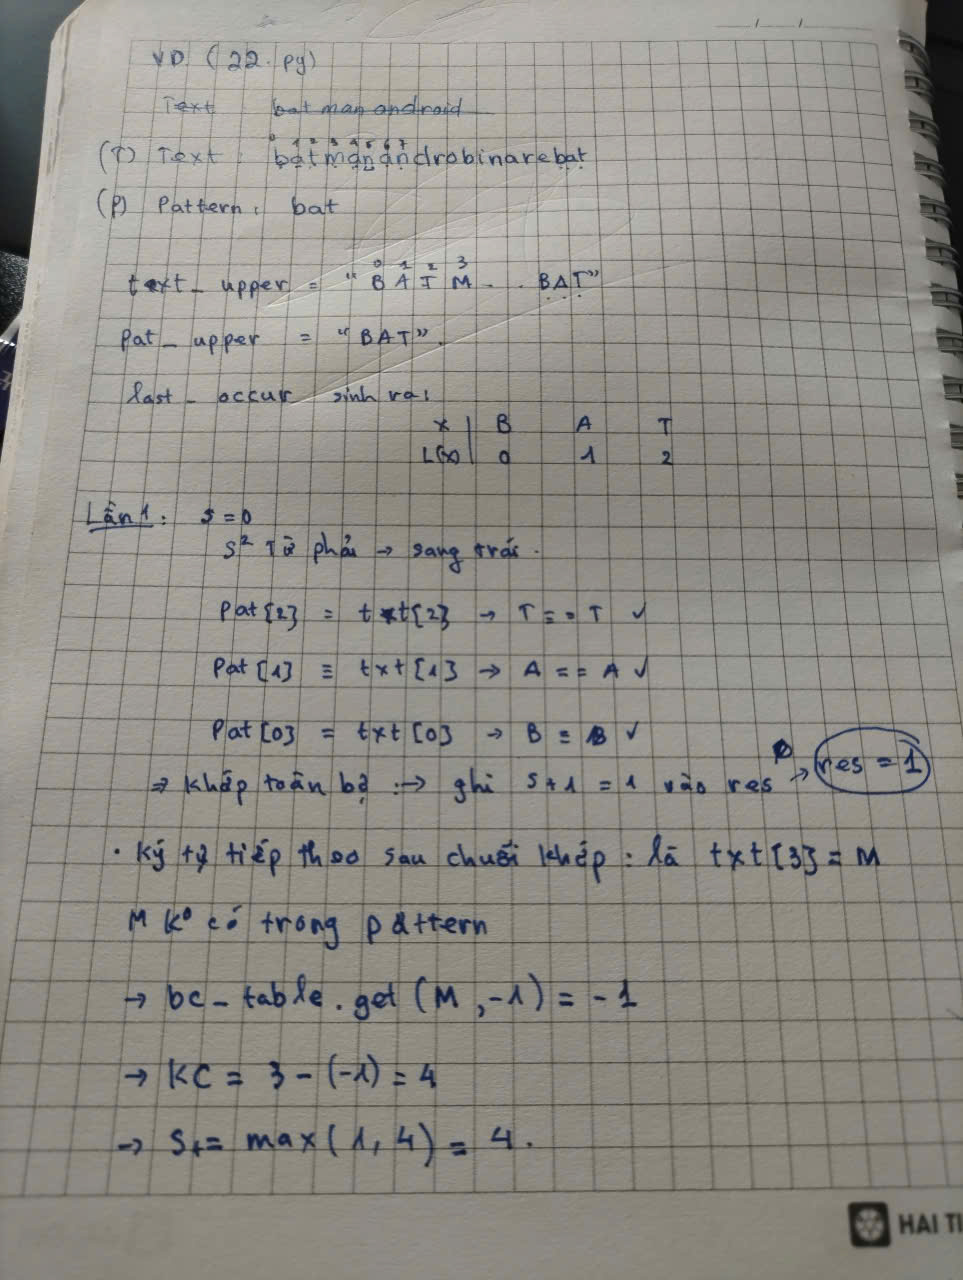 VD (22.py)
Text bat man android
0 1 2 3 4 5 6 7
(T) Text: batmanandrobinarebat
(P) Pattern: bat
0 1 2 3
text_upper = "BATM.. BAT"
Pat_upper = "BAT".
last_occur sinh ra:
x | B A T
L(x) | 0 1 2
Lần 1: s = 0
Từ phải → sang trái.
Pat[2] = txt[2] → T == T ✓
Pat[1] = txt[1] → A == A ✓
Pat[0] = txt[0] → B = B ✓
⇒ Khớp toàn bộ → ghi s+1 = 1 vào res → res = 1
• Ký tự tiếp theo sau chuỗi khớp: là txt[3] = M
M k° có trong pattern
→ bc_table.get(M,-1) = -1
→ KC = 3 - (-1) = 4
→ S+= max(1,4) = 4.
HAI TI